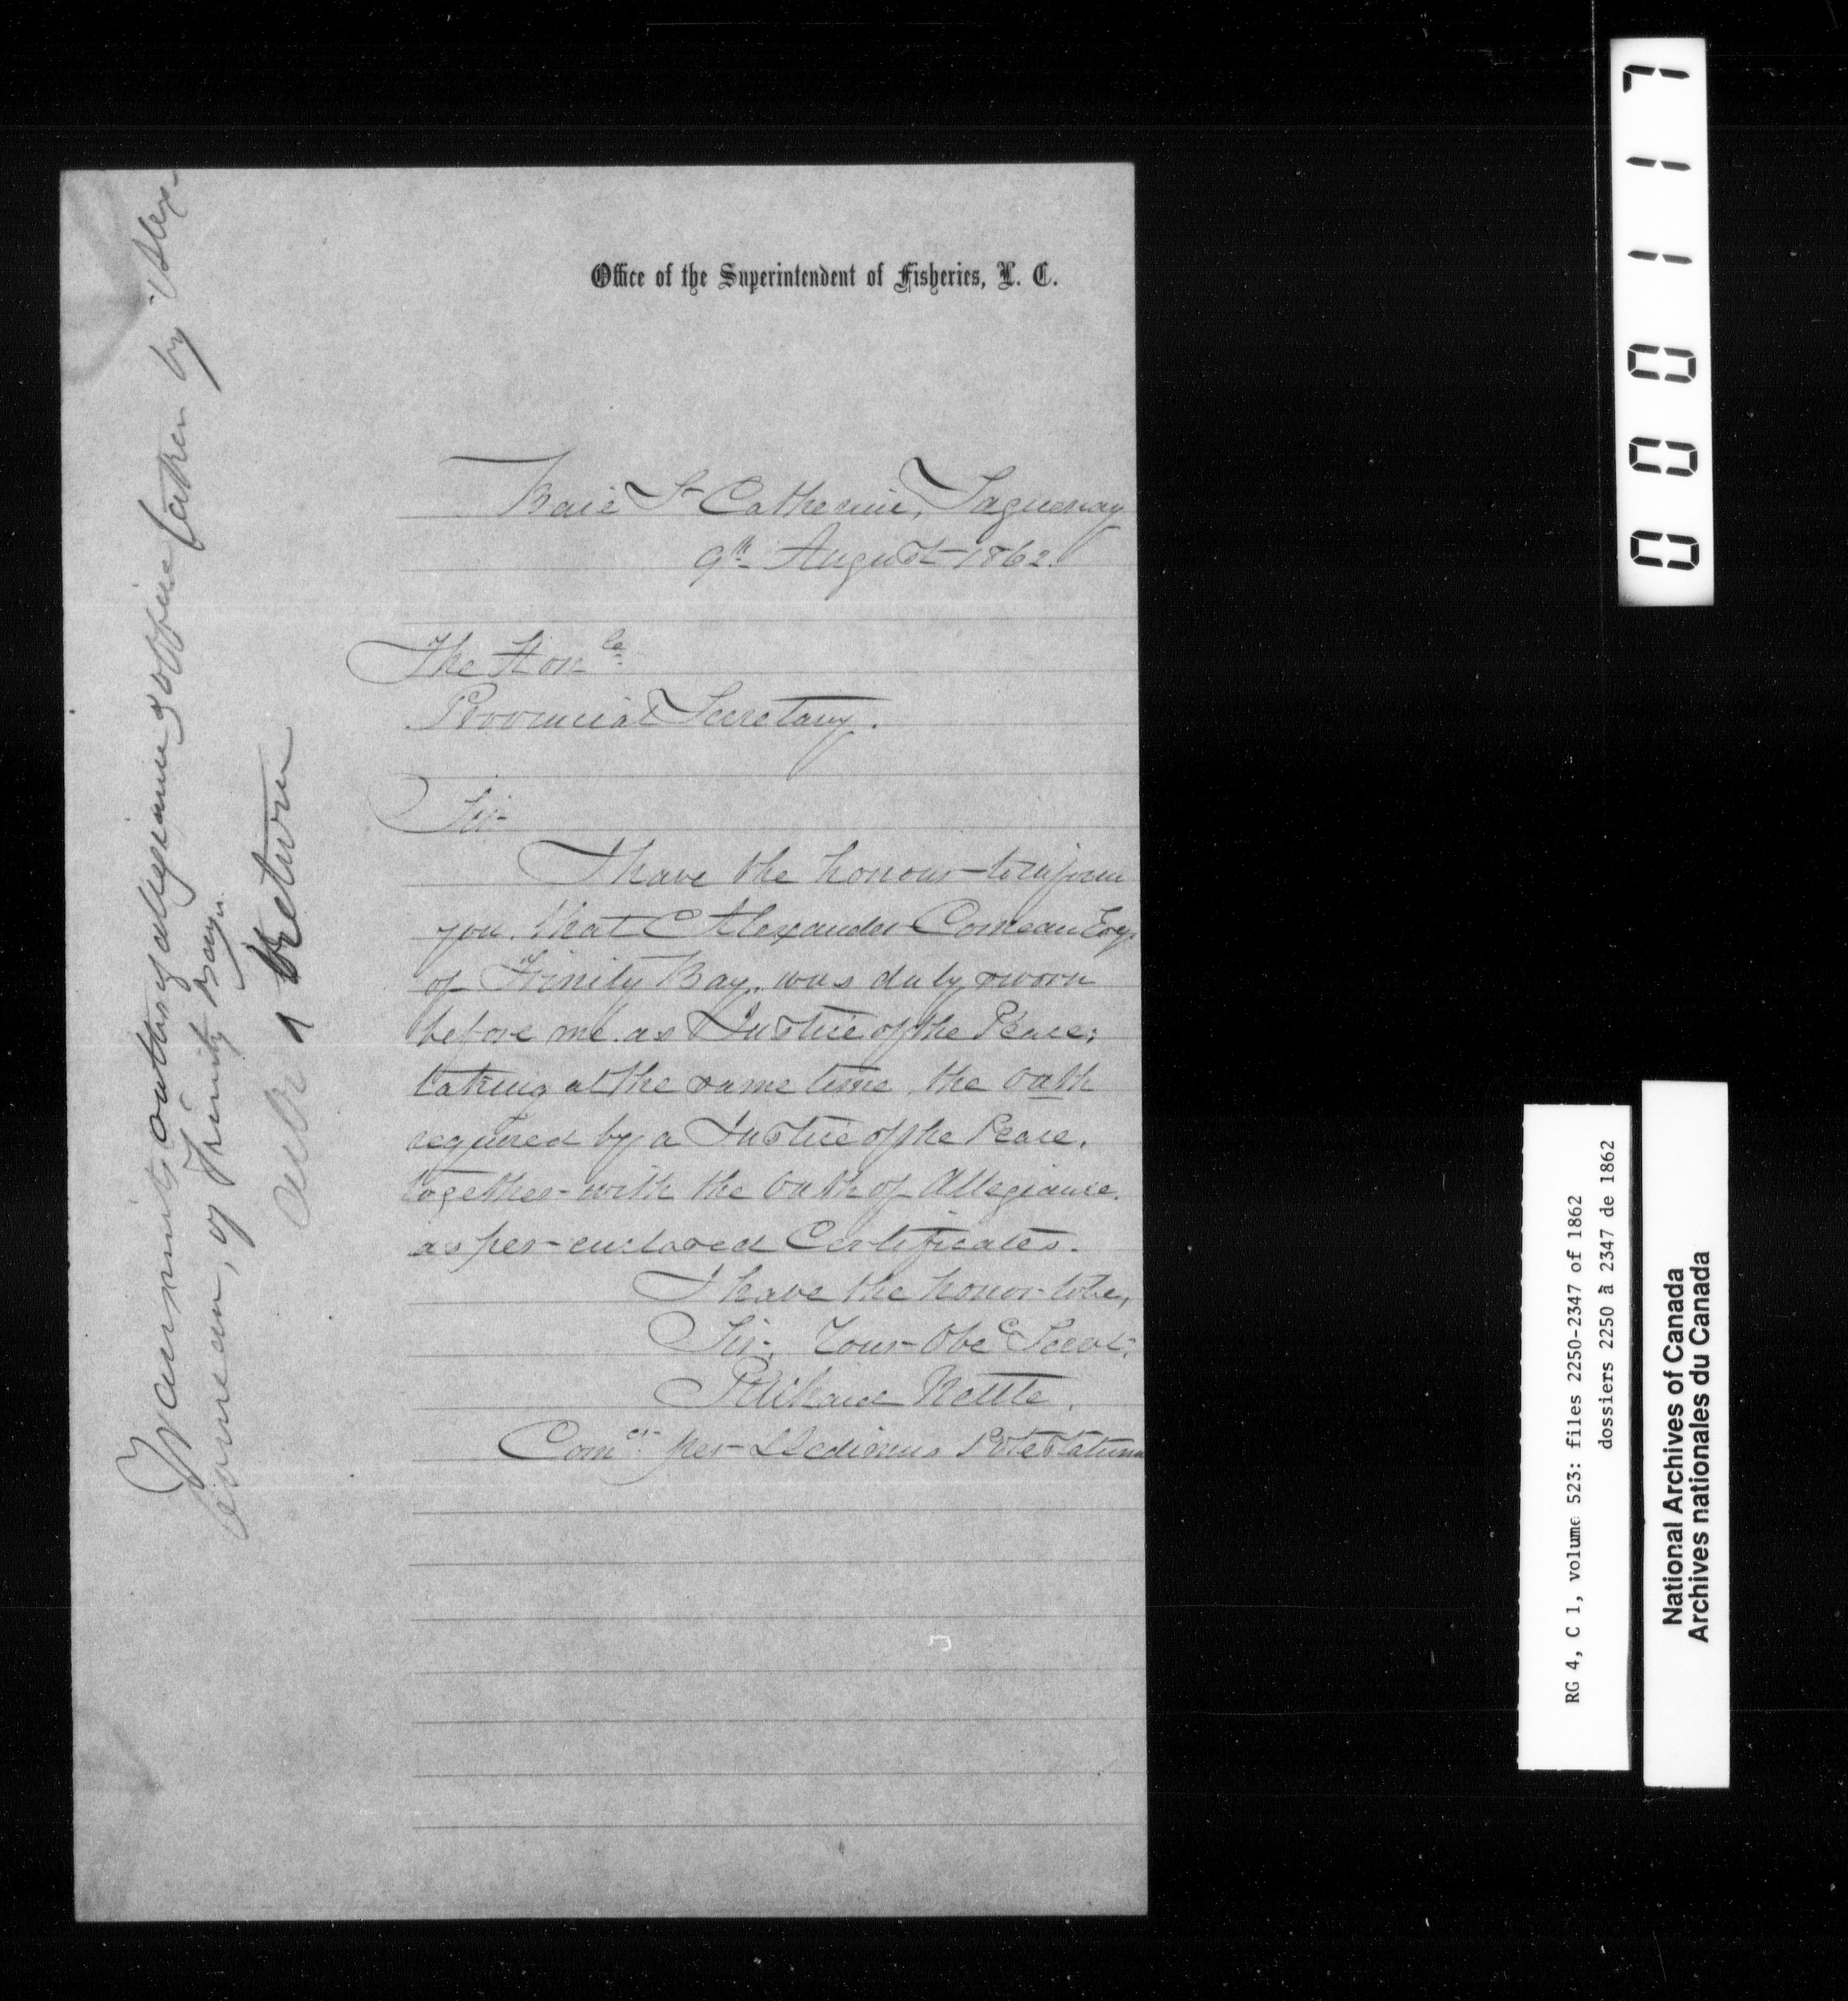 Office of the Superintendent of Fisheries, L. C.
Baie St Catherine, Saguenay
9th August 1862.
The Honble
Provincial Secretary.
Sir-
I have the honour to inform
you, that Alexander Comeau Esqr
of Trinity Bay, was duly sworn
before me as Justice of the Peace;
taking at the same time, the oath
required by a Justice of the Peace,
together with the Oath of Allegiance.
as per enclosed Certificates.
I have the honor to be,
Sir, Your Obe Servt
Richard Nettle.
Comer per Dedimus Potestatum
Transmits oaths of allegiance & office taken by Alex.
Comeau, of Trinity Bay.
Return
000117
RG 4, C 1, volume 523: files 2250-2347 of 1862
dossiers 2250 à 2347 de 1862
National Archives of Canada
Archives nationales du Canada